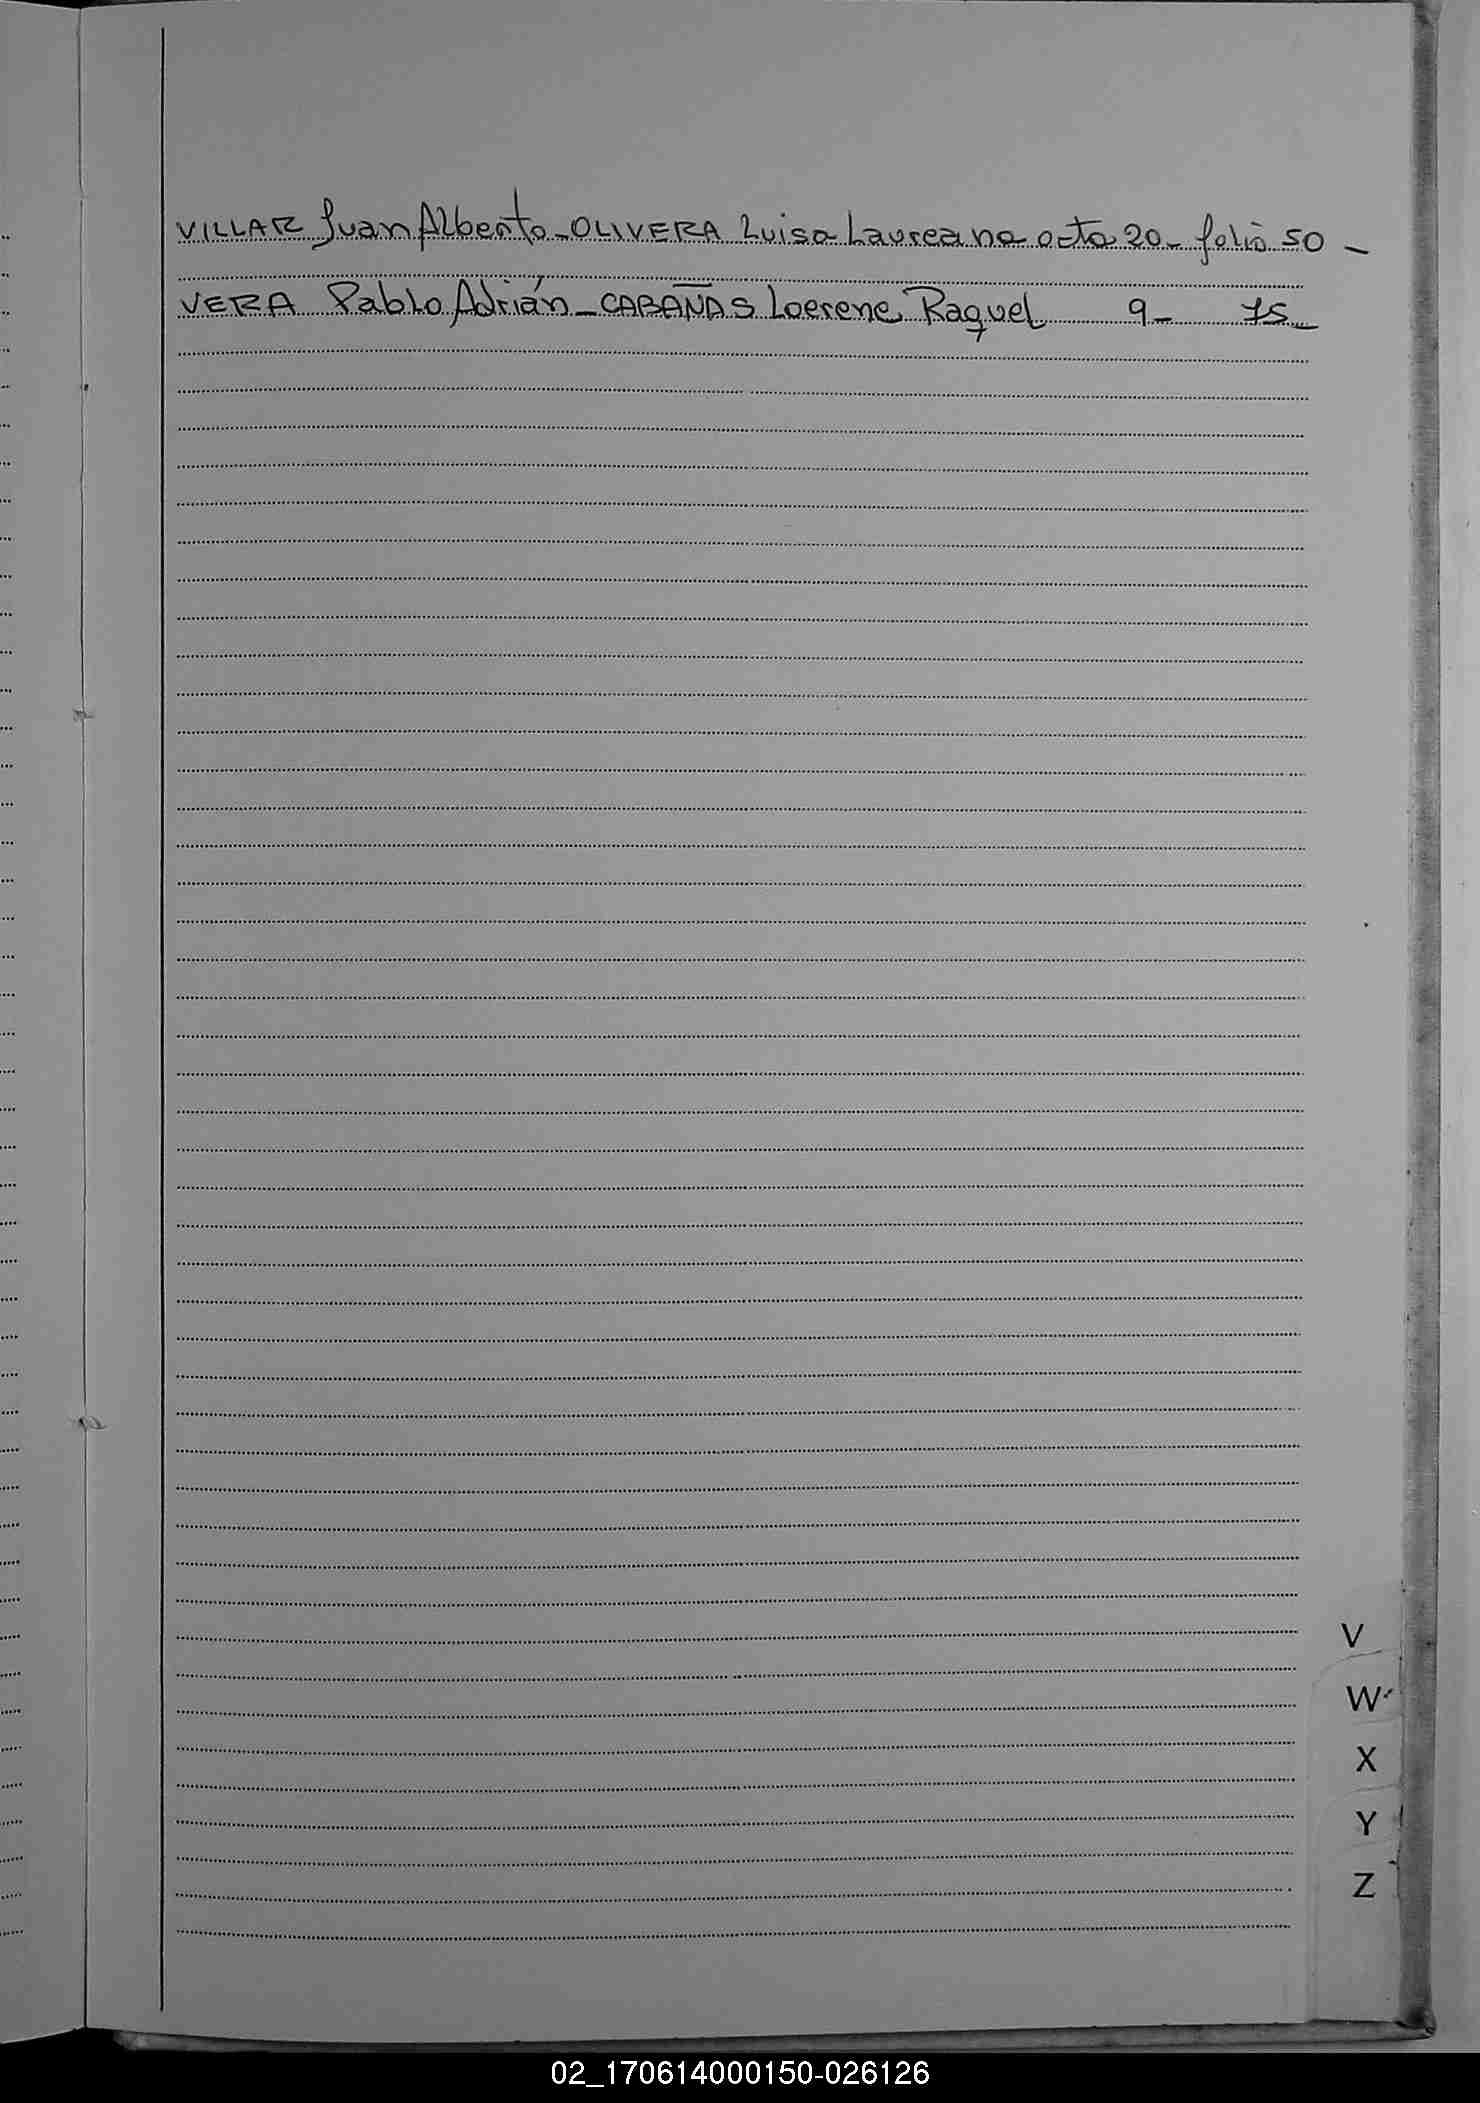 VILLAR Juan Alberto - OLIVERA Luisa Laureana acta 20 - folio 50 -
VERA Pablo Adrián - CABAÑAS Loerene Raquel 9 - 75 -
V
W
X
Y
Z
02_170614000150-026126